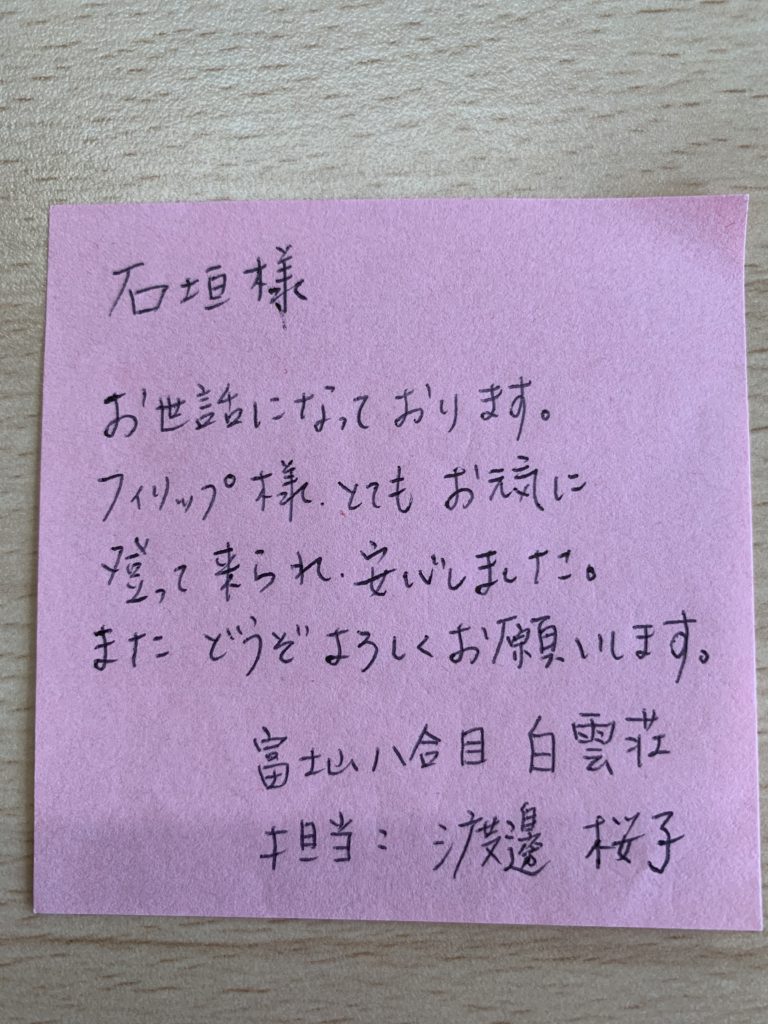 石垣様
お世話になっております。
フィリップ様、とてもお元気に
登って来られ、安心しました。
またどうぞよろしくお願いします。
富士山八合目 白雲荘
担当：渡邊 桜子